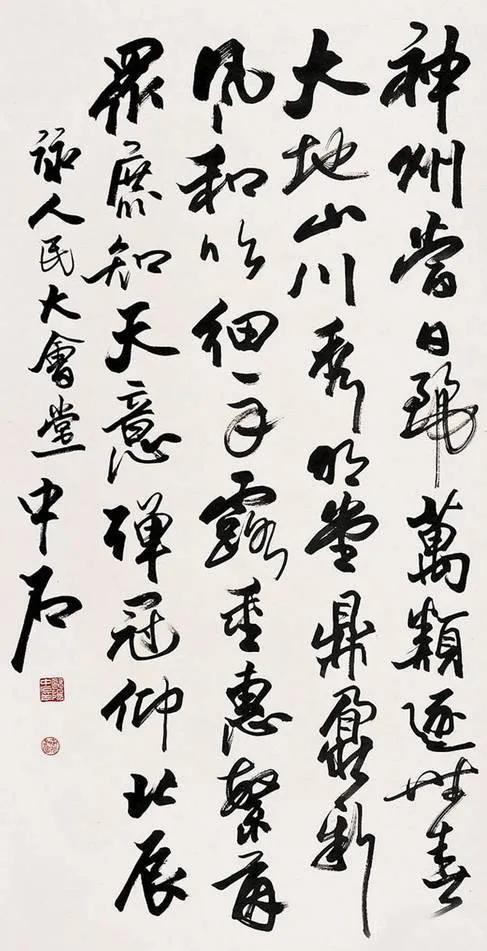 神州當日麗萬類逐時春
大地山川秀明堂鼎鼐新
風和吹細雨露垂惠繁
眾庶知天意彈冠仰北辰
詠人民大會堂 中石